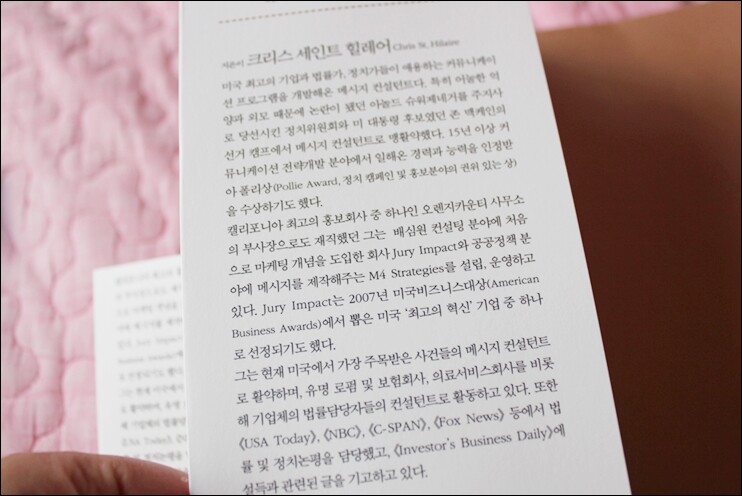 지은이 크리스 세인트 힐레어 Chris St. Hilaire
미국 최고의 기업과 법률가, 정치가들이 애용하는 커뮤니케이
션 프로그램을 개발해온 메시지 컨설턴트다. 특히 어눌한 억
양과 외모 때문에 논란이 됐던 아놀드 슈워제네거를 주지사
로 당선시킨 정치위원회와 미 대통령 후보였던 존 맥케인의
선거 캠프에서 메시지 컨설턴트로 맹활약했다. 15년 이상 커
뮤니케이션 전략개발 분야에서 일해온 경력과 능력을 인정받
아 폴리상(Pollie Award, 정치 캠페인 및 홍보분야의 권위 있는 상)
을 수상하기도 했다.
캘리포니아 최고의 홍보회사 중 하나인 오렌지카운티 사무소
의 부사장으로도 재직했던 그는 배심원 컨설팅 분야에 처음
으로 마케팅 개념을 도입한 회사 Jury Impact와 공공정책 분
야에 메시지를 제작해주는 M4 Strategies를 설립, 운영하고
있다. Jury Impact는 2007년 미국비즈니스대상(American
Business Awards)에서 뽑은 미국 '최고의 혁신' 기업 중 하나
로 선정되기도 했다.
그는 현재 미국에서 가장 주목받은 사건들의 메시지 컨설턴트
로 활약하며, 유명 로펌 및 보험회사, 의료서비스회사를 비롯
해 기업체의 법률담당자들의 컨설턴트로 활동하고 있다. 또한
《USA Today》, 《NBC》, 《C-SPAN》, 《Fox News》 등에서 법
률 및 정치논평을 담당했고, 《Investor's Business Daily》에
설득과 관련된 글을 기고하고 있다.